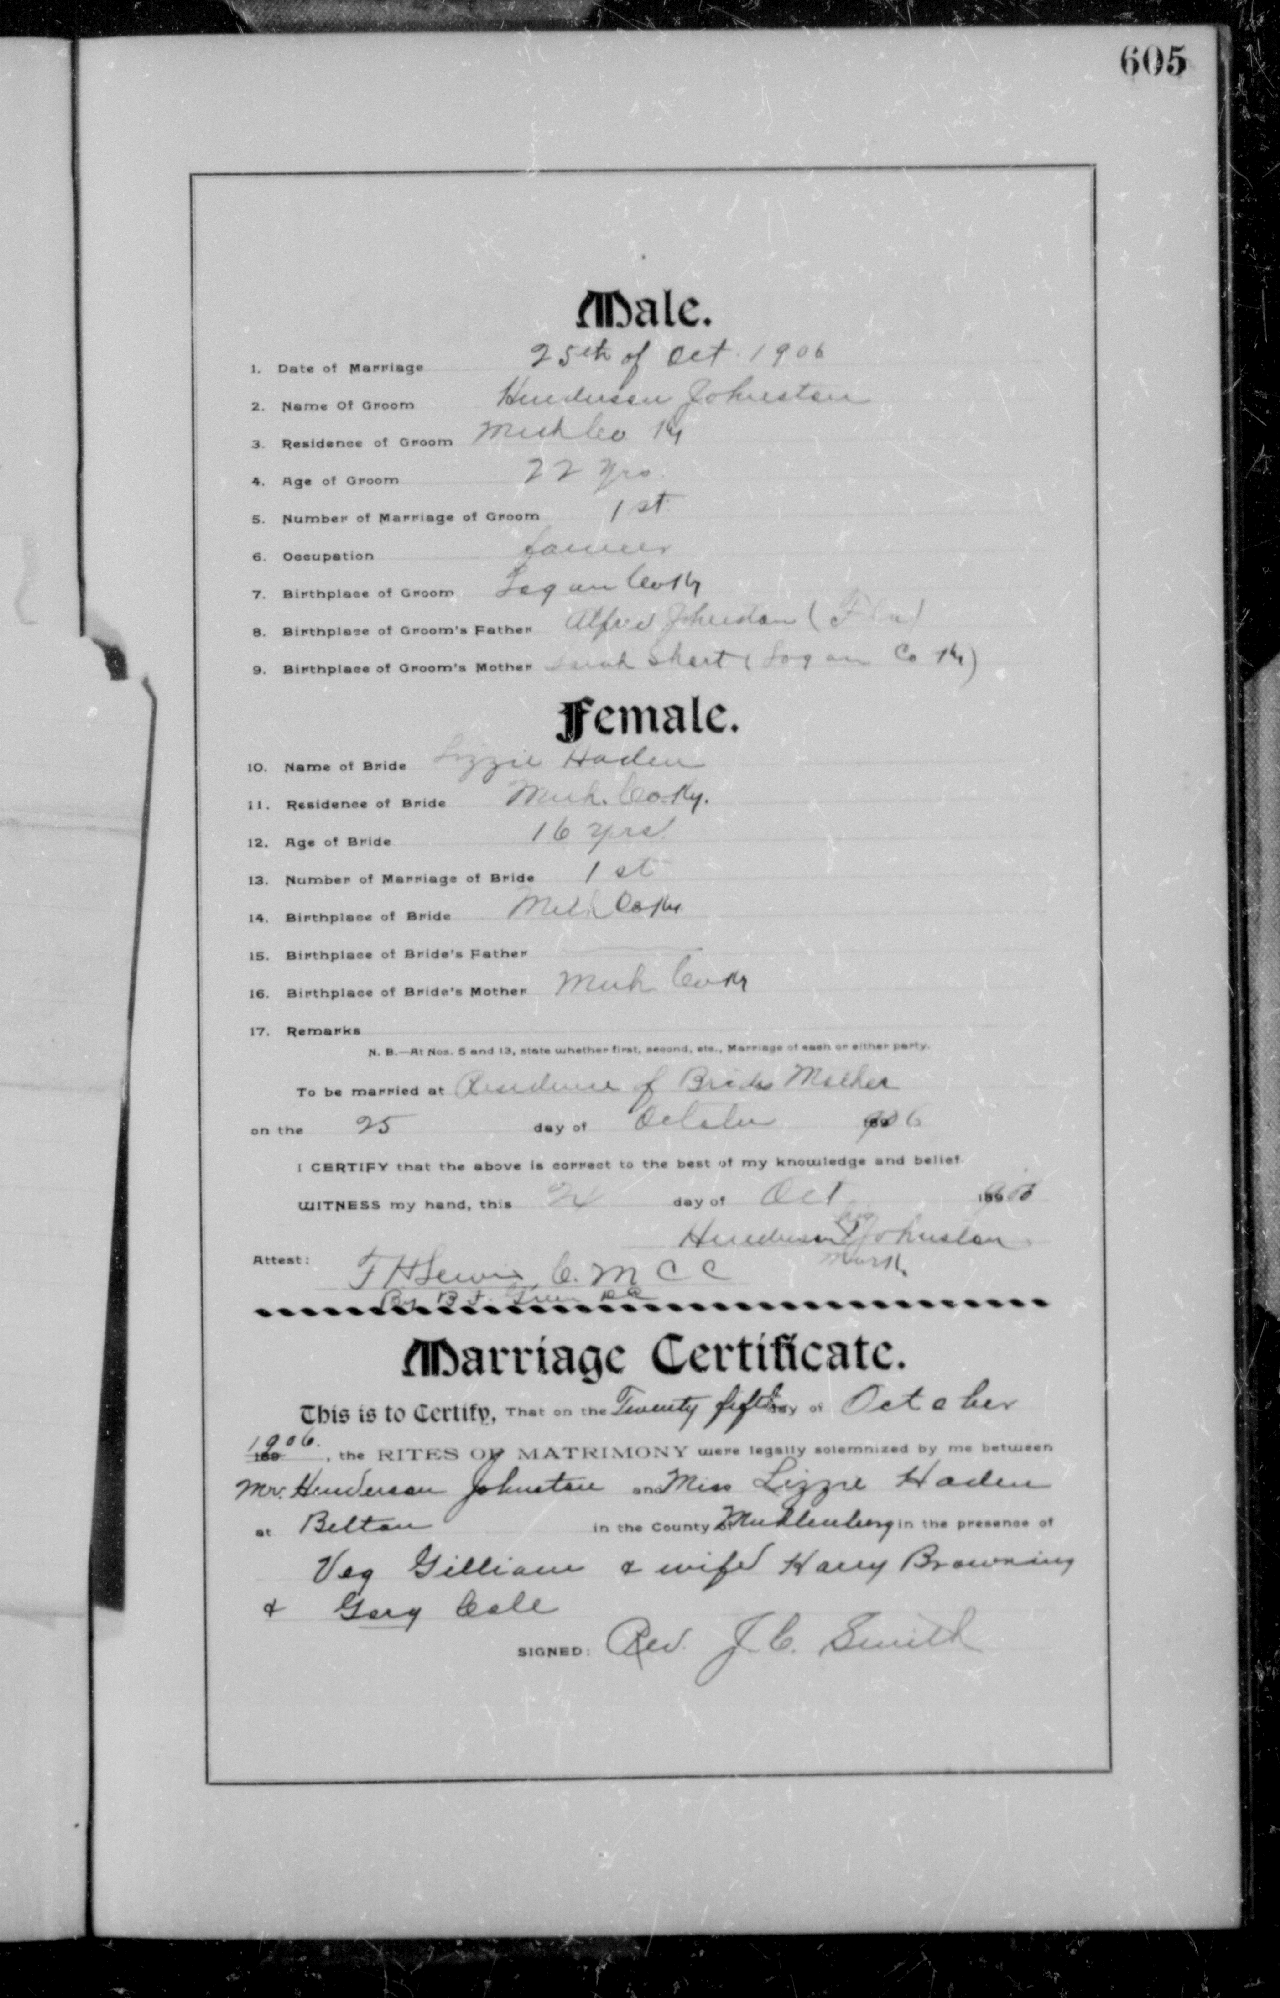 605
Male.
1. Date of Marriage 25th of Oct. 1906
2. Name Of Groom Henderson Johnston
3. Residence of Groom Muhl Co Ky
4. Age of Groom 22 yrs.
5. Number of Marriage of Groom 1st
6. Occupation farmer
7. Birthplace of Groom Logan Co Ky
8. Birthplace of Groom's Father Alfred Johnston (
9. Birthplace of Groom's Mother Sarah Short (Logan Co Ky)
Female.
10. Name of Bride Lizzie Haden
11. Residence of Bride Muh. Co. Ky.
12. Age of Bride 16 yrs
13. Number of Marriage of Bride 1 st
14. Birthplace of Bride Muh Co Ky
15. Birthplace of Bride's Father
16. Birthplace of Bride's Mother Muh Co Ky
17. Remarks
N. B.—At Nos. 5 and 13, state whether first, second, etc., Marriage of each or either party.
To be married at Residence of Brides Mother
on the 25 day of October 1906
I CERTIFY that the above is correct to the best of my knowledge and belief.
WITNESS my hand, this day of Oct. 1906
Henderson Johnston
mark
Attest: T H Lewis C. M C C
By B J. Green DC
Marriage Certificate.
This is to Certify, That on the Twenty fifth day of October
1906. 189 , the RITES OF MATRIMONY were legally solemnized by me between
Mr. Henderson Johnston and Miss Lizzie Haden
at Belton in the County of Muhlenberg in the presence of
Veg Gilliam & wife Harry Browning
& Gary Cole
SIGNED: Rev. J. C. Smith